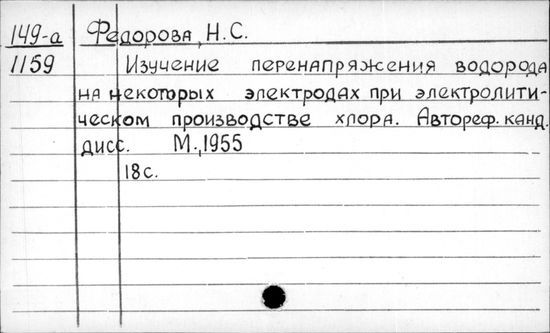 149-а Федорова, Н.С.
1159 Изучение перенапряжения водорода
на некоторых электродах при электролити-
ческом производстве хлора. Автореф. канд.
дисс. М., 1955
18 с.